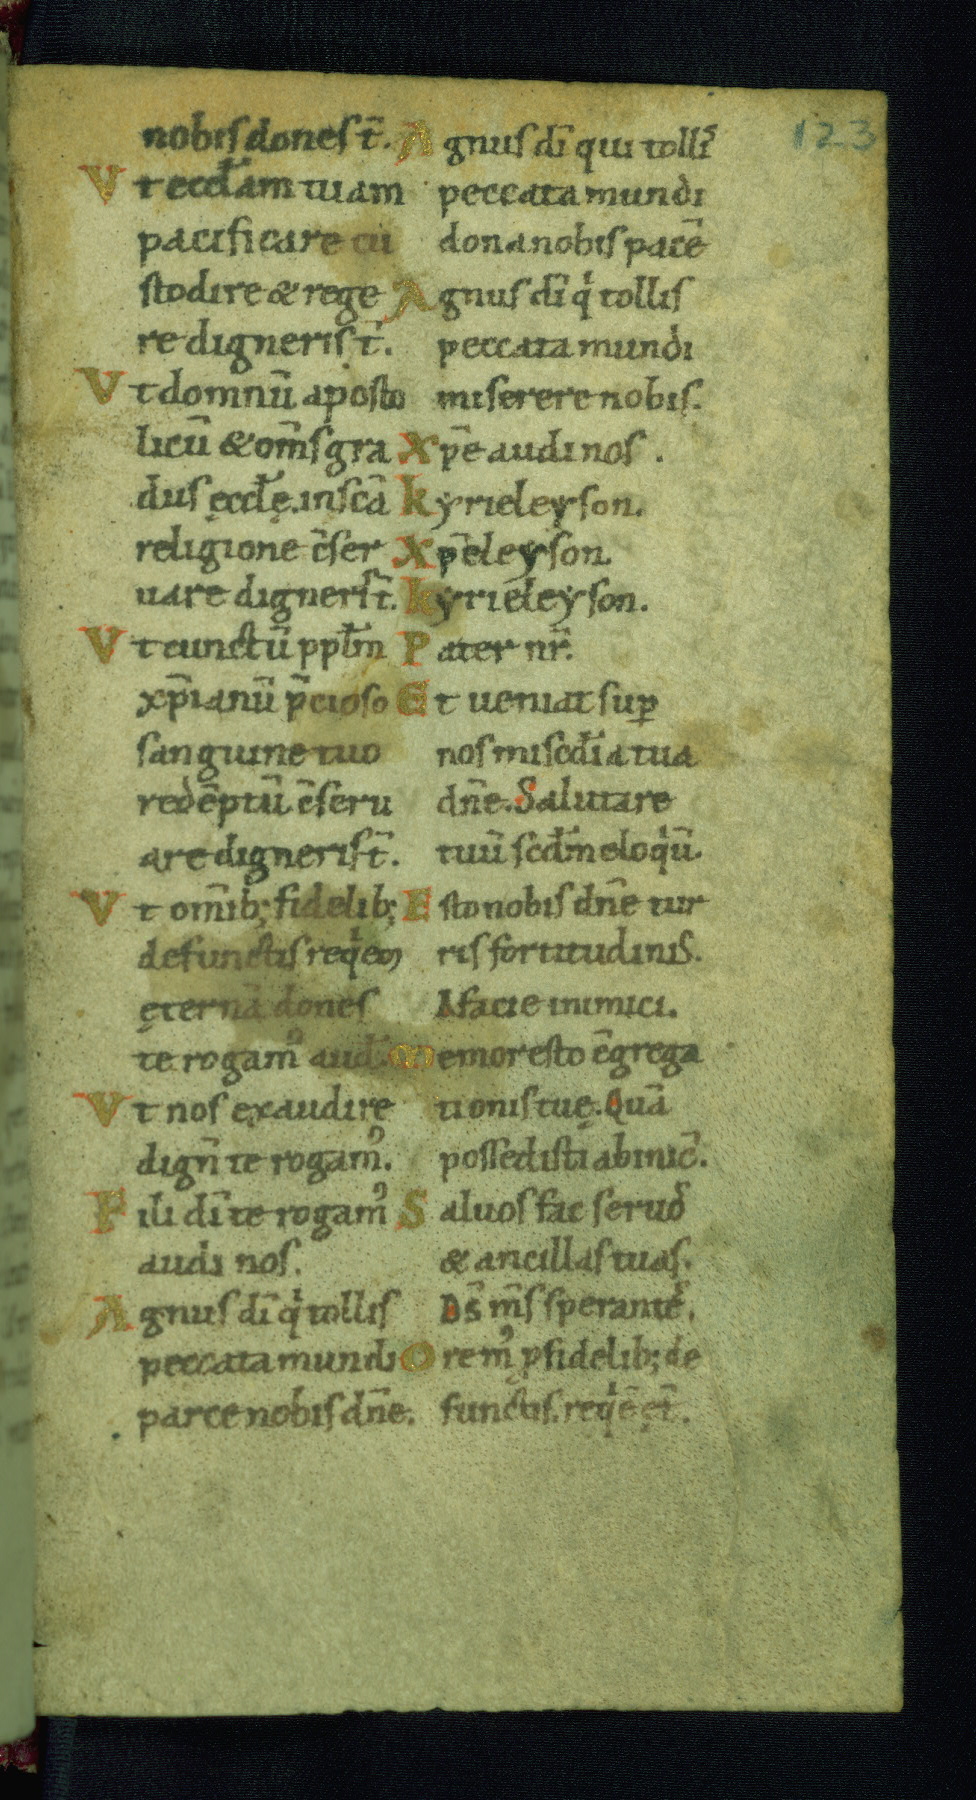 123
nobis dones t̄.
Vt eccl̄am tuam
pacificare cu
stodire & rege
re digneris t̄.
Vt domnū aposto
licū & om̄s gra
dus ęccl̄ę. in sc̄a
religione c̄ser
uare digner̄s t̄.
Vt cunctū ppl̄m
xp̄ianū p̄cioso
sanguine tuo
redēptū c̄seru
are digneris t̄.
Vt om̄ib; fidelib;
defunctis reqͥem
ęternā dones
te rogamꝰ aud̄.
Vt nos exaudire
dign̄ te rogamꝰ.
Fili dī te rogamꝰ
audi nos.
Agnus dī qͥ tollis
peccata mundi
parce nobis dn̄e.
Agnus dī qui tollis̄
peccata mundi
dona nobis pacē
Agnus dī qͥ tollis
peccata mundi
miserere nobis.
Xp̄e audi nos.
kyrieleyson.
Xp̄eleyson.
kyrieleyson.
Pater nr̄.
Et ueniat suꝑ
nos miscd̄ia tua
dn̄e. Salutare
tuū scd̄m eloqͥū.
Esto nobis dn̄e tur
ris fortitudinis.
A facie inimici.
Memor esto c̄grega
tionis tuę. Quā
possedisti ab inic̄.
Saluos fac seruos
& ancillas tuas.
Ds̄ m̄s sperantes.
Oremꝰ ꝓ fidelib; de
functis. reqͥē ęt̄.